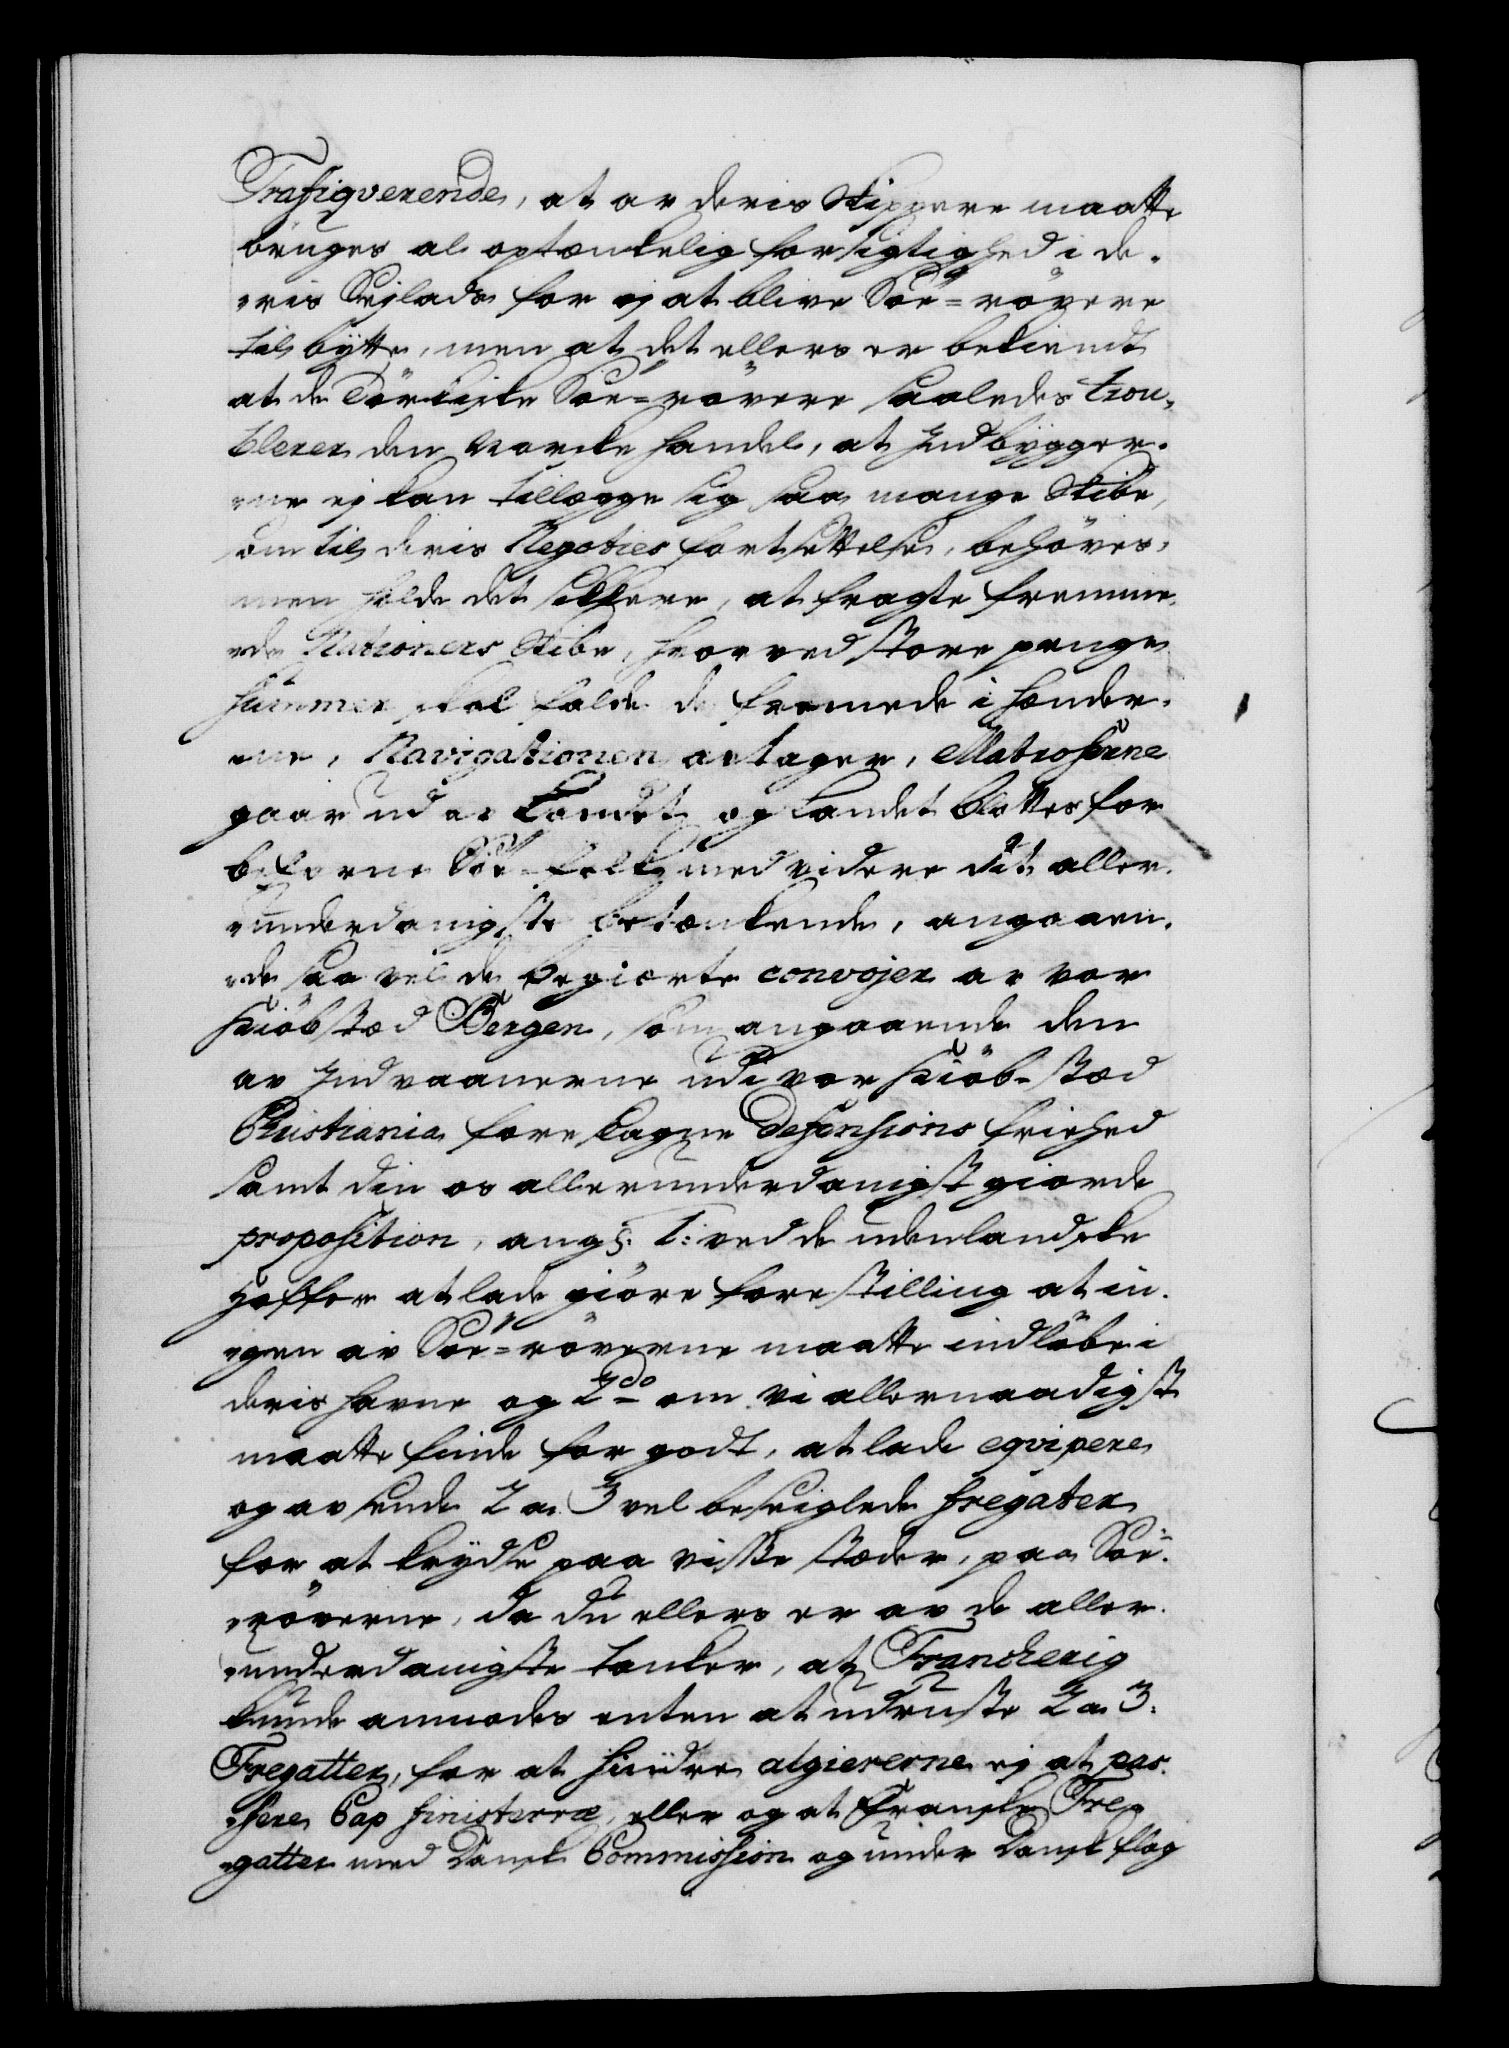 Trafiqverende, at av deris Skippere maatte
bruges al optænkelig forsigtighed i de-
eris Sejlads for ej at blive Söe=rövere
til bytte, men at det ellers er bekiendt
at de Törkiske Söe=rövere saaledes trou-
blerer den Norske handel, at Indbygger-
ne ej kan tillægge sig saa mange Skibe,
som til deris Negoties fortsettelse, behöves,
men holde det sikkere, at fragte fremme-
de Nationers Skibe, hvorved store penge
Summer skal falde de fremmede i hænder-
ne, Navigationen avtager, Matroserne
gaar ud av Landet og Landet blottes for
befarne Söe-folk med videre dit aller-
underdanigste betænkende, angaaen-
de saa vel de begierte convojer av vor
Kiöbstæd Bergen, som angaaende den
av Indvaanerne udi vor Kiöb-stæd
Christiania foreslagne Defensions frihed
samt din os allerunderdanigst giorde
proposition, ang: 1: ved de udenlandske
Hoffer at lade giöre forestilling at in-
gen av Söe=röverne maatte indlöbe i
deris havne og 2do om vi allernaadigst
maatte finde for godt, at lade eqvipere
og avsende 2 a 3 vel beseiglede fregater
for at krydse paa visse stæder, paa Söe-
röverne, da du ellers er av de aller-
underdanigste tanker, at Franckerig
kunde anmodes enten at udruste 2 a 3:
Fregatter, for at hindre algiererne ej at pas-
sere Cap finisterræ, eller og at Franske Fre-
gatter med Dansk Commission og under Dansk flag